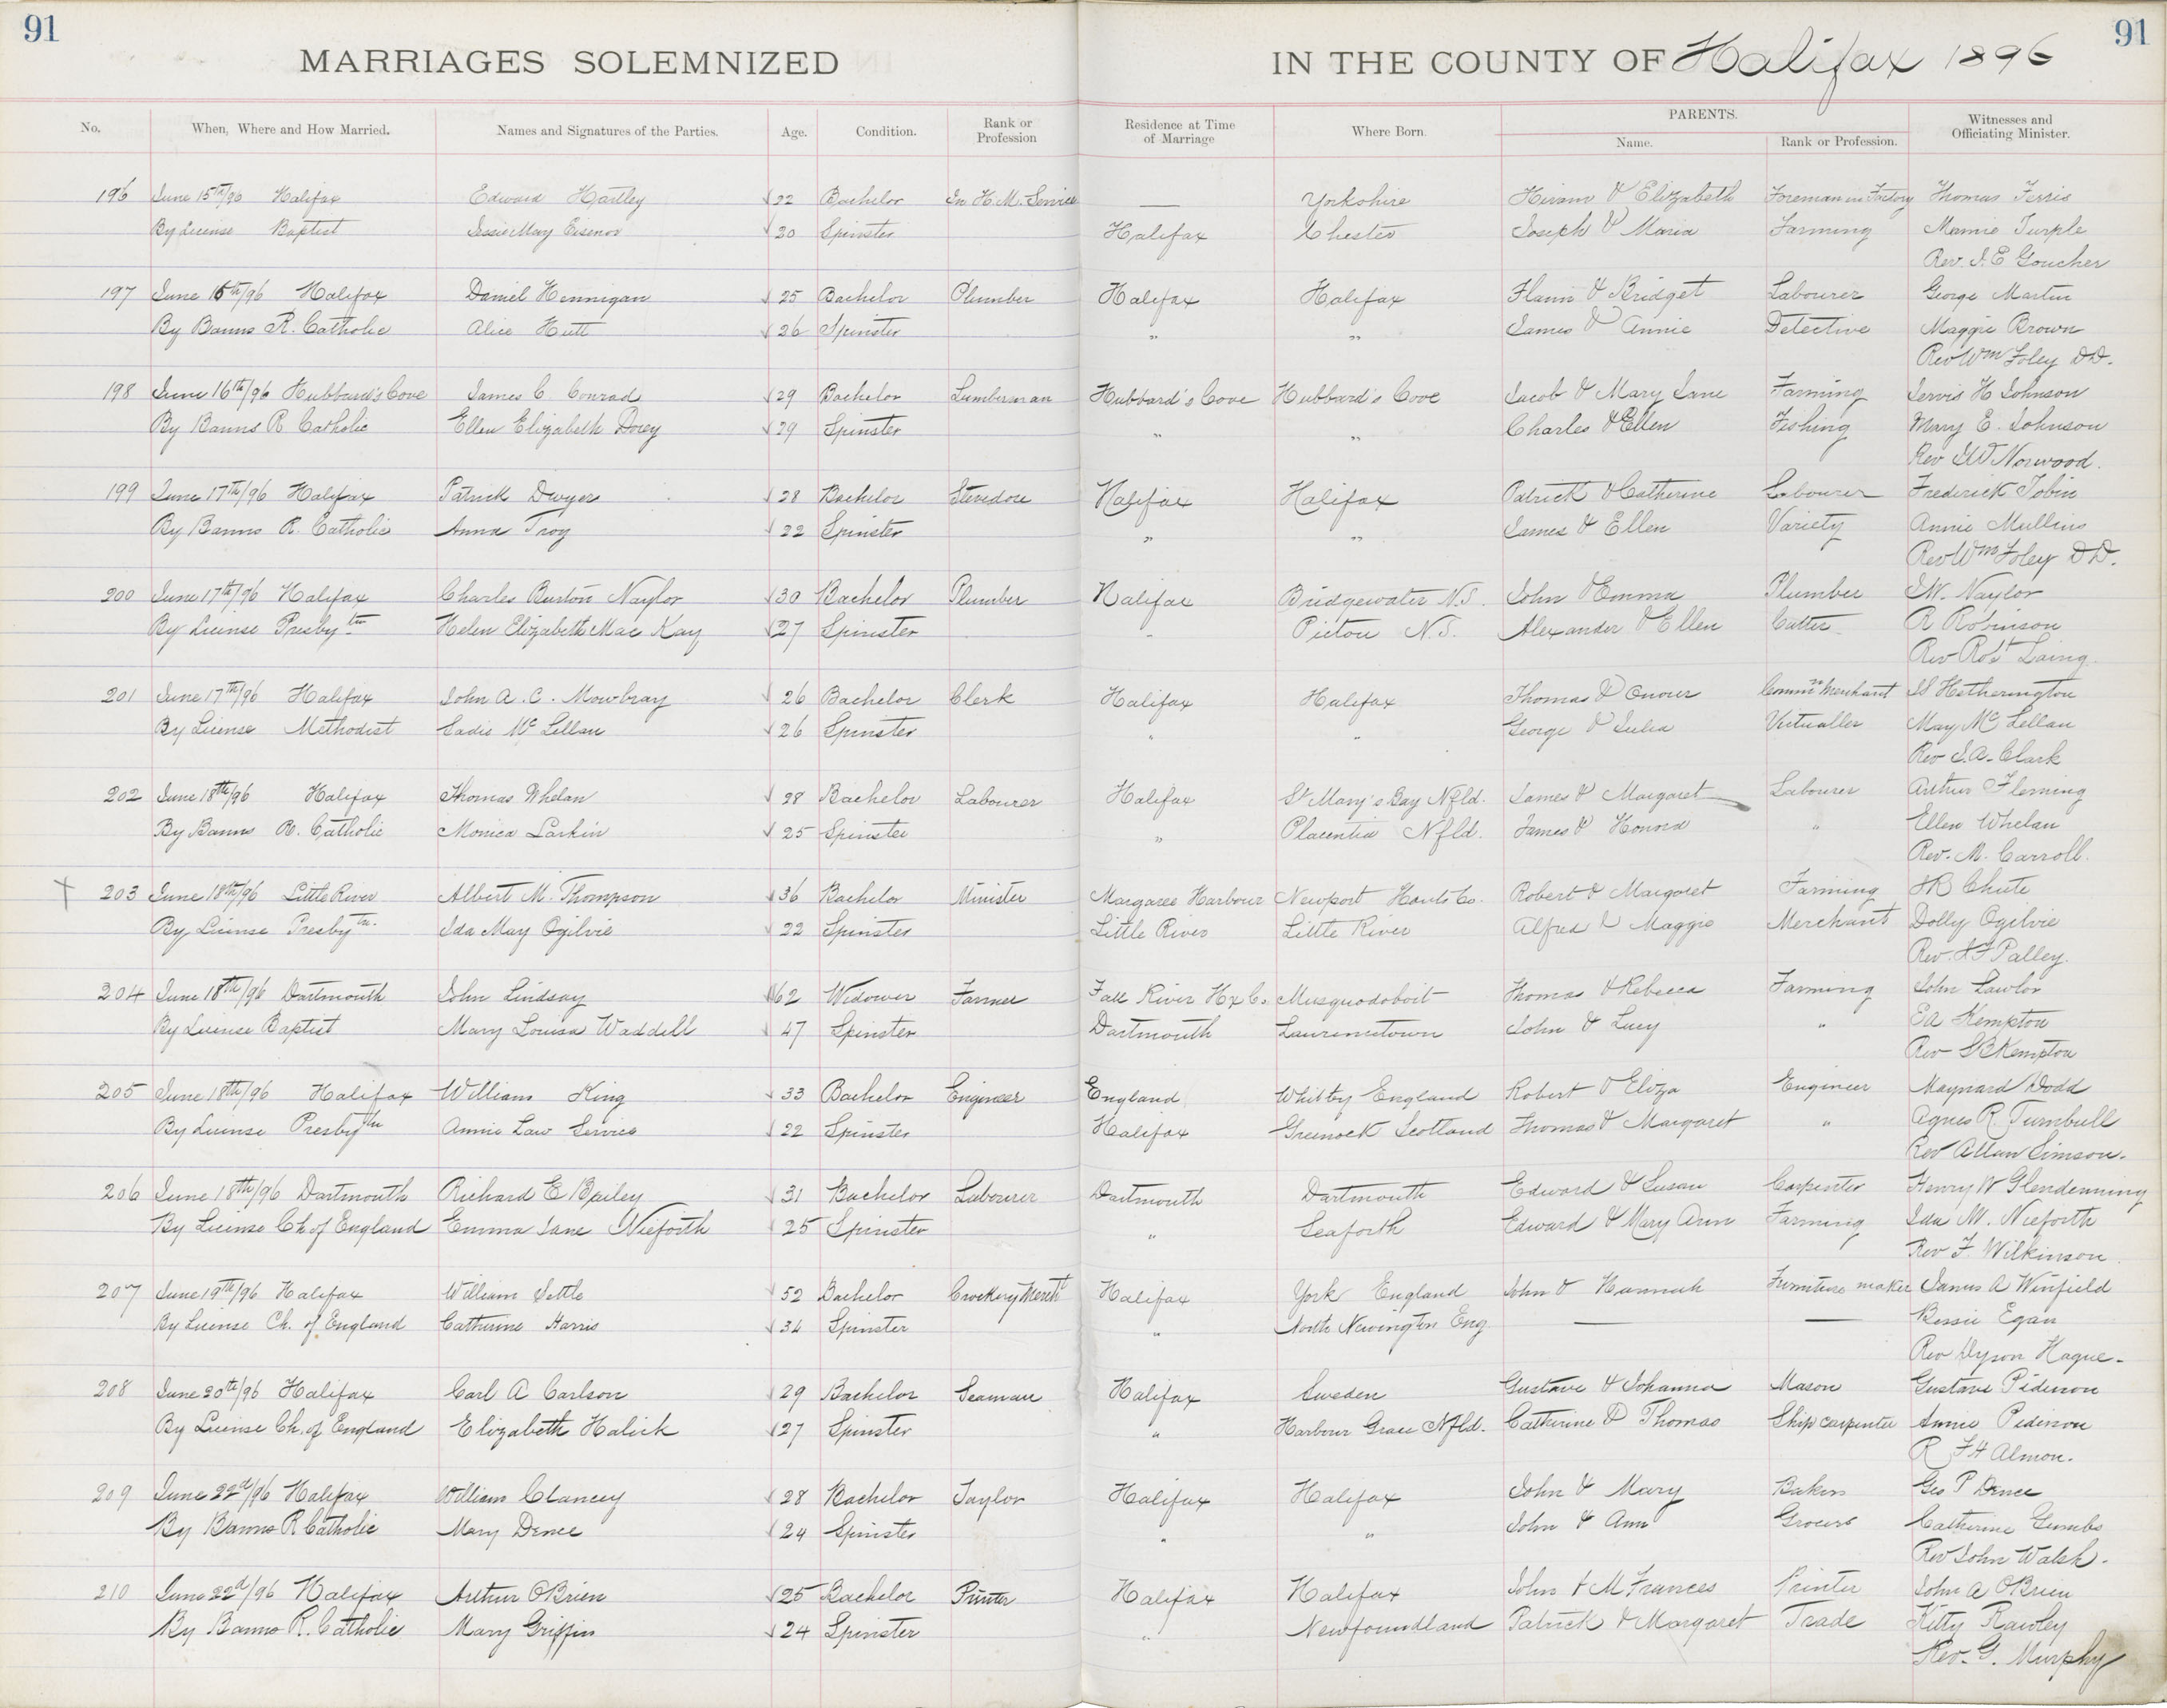 91 91
MARRIAGES SOLEMNIZED IN THE COUNTY OF Halifax 1896
No. When, Where and How Married. Names and Signatures of the Parties. Age. Condition. Rank or Profession Residence at Time of Marriage Where Born. PARENTS. Name. Rank or Profession. Witnesses and Officiating Minister.
196 June 15th/96 Halifax Edward Hartley 22 Bachelor In H.M. Service — Yorkshire Hiram & Elizabeth Foreman in Factory Thomas Ferris
By License Baptist Jessie May Eisenor 20 Spinster Halifax Chester Joseph & Maria Farming Mamie Turple
Rev. J. E Goucher
197 June 16th/96 Halifax Daniel Hennigan 25 Bachelor Plumber Halifax Halifax Flann & Bridget Labourer George Martin
By Banns R. Catholic Alice Hutt 26 Spinster " " James & Annie Detective Maggie Brown
Rev Wm Foley DD.
198 June 16th/96 Hubbard's Cove James C. Conrad 29 Bachelor Lumberman Hubbard's Cove Hubbard's Cove Jacob & Mary Jane Farming Jervis H Johnson
By Banns R Catholic Ellen Elizabeth Dorey 29 Spinster " " Charles & Ellen Fishing Mary E. Johnson
Rev Norwood.
199 June 17th/96 Halifax Patrick Dwyer 28 Bachelor Stevedore Halifax Halifax Patrick & Catherine Labourer Frederick Tobin
By Banns R. Catholic Anna Troy 22 Spinster " " James & Ellen Variety Annie Mullins
Rev Wm Foley DD.
200 June 17th/96 Halifax Charles Burton Naylor 30 Bachelor Plumber Halifax Bridgewater N.S. John & Emma Plumber J.W. Naylor
By License Presbytn Helen Elizabeth Mac Kay 27 Spinster " Pictou N.S. Alexander & Ellen Cutter A Robinson
Rev Robt Laing
201 June 17th/96 Halifax John A. C. Mowbray 26 Bachelor Clerk Halifax Halifax Thomas & Onour Commn Merchant Hetherington
By License Methodist Sadie McLellan 26 Spinster " " George & Julia Victualler May McLellan
Rev J.A. Clark
202 June 18th/96 Halifax Thomas Whelan 28 Bachelor Labourer Halifax St Mary's Bay Nfld. James & Margaret Labourer Arthur Fleming
By Banns R. Catholic Monica Larkin 25 Spinster " Placentia Nfld. James & Honora " Ellen Whelan
Rev. M. Carroll.
203 June 18th/96 Little River Albert M. Thompson 36 Bachelor Minister Margaree Harbour Newport Hants Co. Robert & Margaret Farming Chute
By License Presbytn. Ida May Ogilvie 22 Spinster Little River Little River Alfred & Maggie Merchant Dolly Ogilvie
Rev. Palley.
204 June 18th/96 Dartmouth John Lindsay 62 Widower Farmer Fall River Hx Co. Musquodoboit Thomas & Rebecca Farming John Lawlor
By License Baptist Mary Louisa Waddell 47 Spinster Dartmouth Lawrencetown John & Lucy " E A Kempton
Rev S B Kempton
205 June 18th/96 Halifax William King 33 Bachelor Engineer England Whitby England Robert & Eliza Engineer Maynard Dodd
By License Presbytn Annie Law Service 22 Spinster Halifax Greenock Scotland Thomas & Margaret " Agnes R. Turnbull
Rev Allan Simson.
206 June 18th/96 Dartmouth Richard E Bailey 31 Bachelor Labourer Dartmouth Dartmouth Edward & Susan Carpenter Henry W Glendenning
By License Ch of England Emma Jane Nieforth 25 Spinster " Seaforth Edward & Mary Ann Farming Ida M. Nieforth
Rev F. Wilkinson.
207 June 19th/96 Halifax William Settle 52 Bachelor Crockery Mercht Halifax York England John & Hannah Furniture maker James A Winfield
By License Ch. of England Catherine Harris 34 Spinster " North Newington Eng. — — Bessie Egan
Rev Dyson Hague.
208 June 20th/96 Halifax Carl A Carlson 29 Bachelor Seaman Halifax Sweden Gustave & Johanna Mason Gustave Pederson
By License Ch. of England Elizabeth Halick 27 Spinster " Harbour Grace Nfld. Catherine & Thomas Ship carpenter Annie Pederson
R F H Almon.
209 June 22d/96 Halifax William Clancey 28 Bachelor Taylor Halifax Halifax John & Mary Baker Geo P Dence
By Banns R Catholic Mary Dence 24 Spinster " " John & Ann Grocer Catherine Gumbs
Rev John Walsh.
210 June 22d/96 Halifax Arthur OBrien 25 Bachelor Printer Halifax Halifax John & M Frances Printer John A OBrien
By Banns R. Catholic Mary Griffin 24 Spinster " Newfoundland Patrick & Margaret Trade Kitty Rawley
Rev. G. Murphy